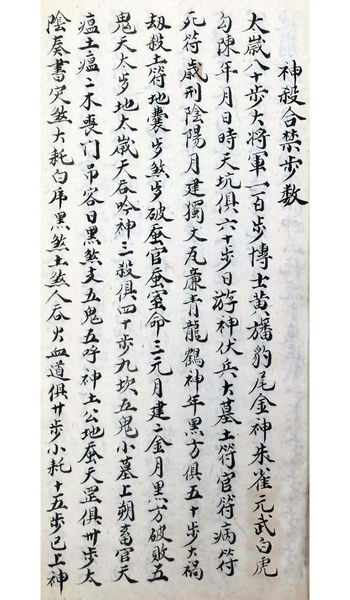 神殺合禁步数
太歳八十步大将軍一百步博士黄旛豹尾金神朱雀元武白虎
勾陳年月日時天坑俱六十步日游神伏兵大墓土符官符病符
死符歳刑陰陽月建獨火瓦廉青龍鶴神年黑方俱五十步大禍
劫殺土符地囊步煞步破蚕官蚕室命三元月建二金月黑方破敗五
鬼天太步地太歳天吞吟神三殺俱四十步九坎五鬼小墓上朔畜官天
瘟土瘟二木喪门吊客日黑煞支五鬼五呼神土公地蚕天罡俱卅步太
陰奏書災煞大耗白虎黑煞土煞人吞火血道俱廿步小耗十五步已上神